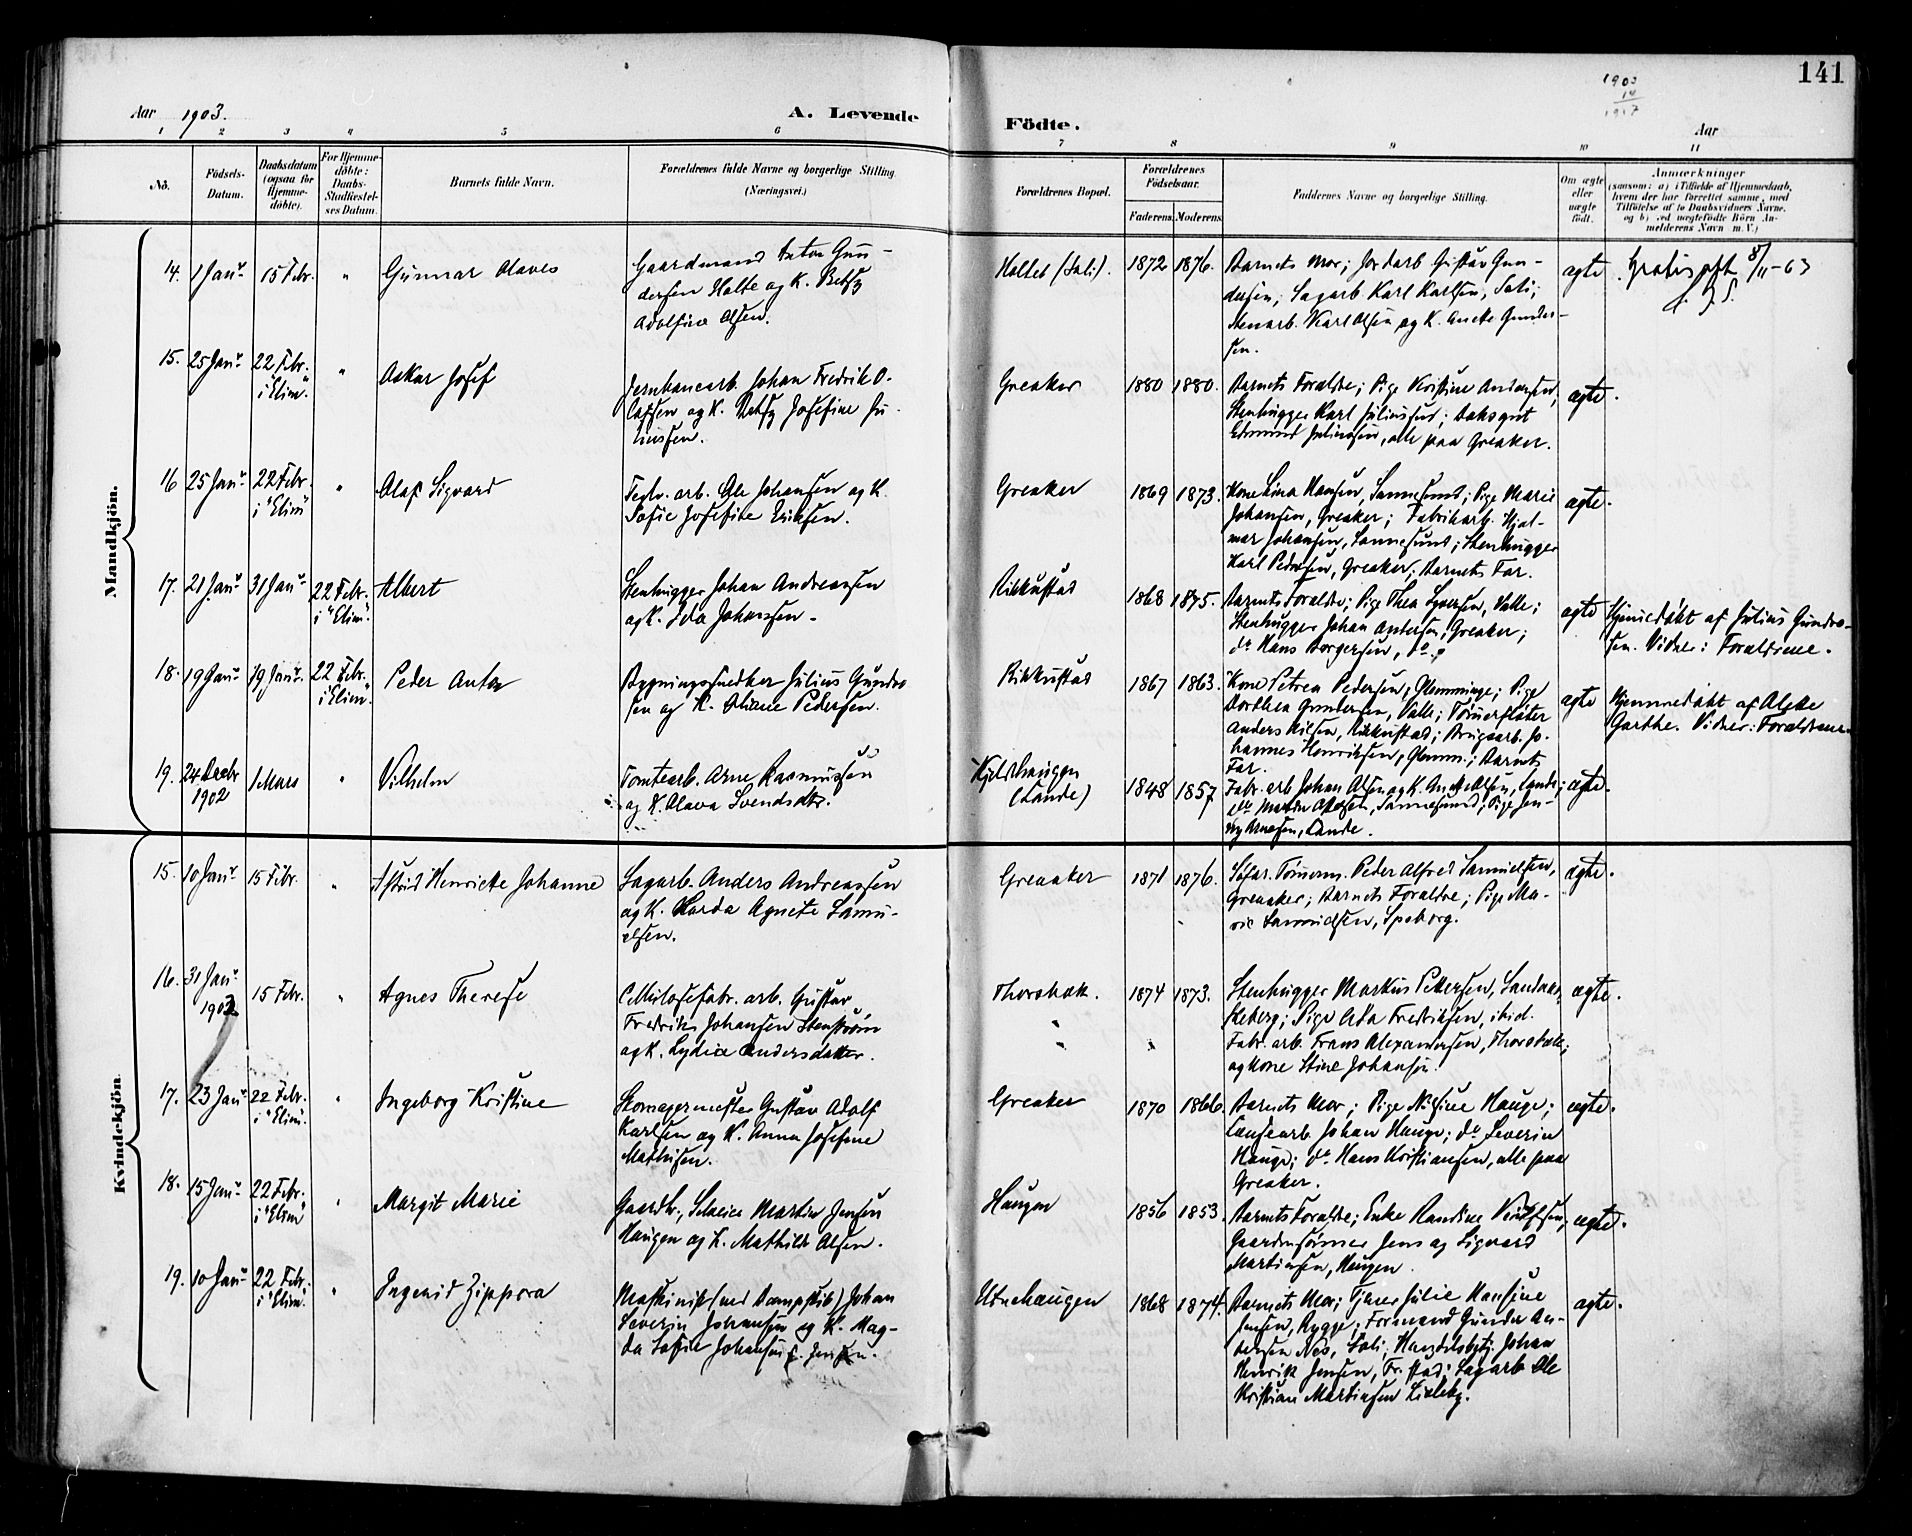 141
1903
14
1917
Aar 1903.
A. Levende
Födte.
Aar
1 2 3 4 5 6 7 8 9 10 11
No.
Födsels-Datum.
Daabsdatum (ogsaa for Hjemme-döbte).
For Hjemme-döbte: Daabs-Stadfæstel-ses Datum.
Barnets fulde Navn.
Forældrenes fulde Navne og borgerlige Stilling (Næringsvei.)
Forældrenes Bopæl.
Forældrenes Födselsaar.
Faderens. Moderens.
Faddernes Navne og borgerlige Stilling.
Om ægte eller uægte födt.
Anmærkninger
(saasom: a) i Tilfælde af Hjemmedaab,
hvem der har forrettet samme, med
Tilföielse af to Daabsvidners Navne.
og b) ved uægtefödte Börn An-
melderens Navn m. V.)
Mandkjön.
14. 1 Janr 15 Febr. " Gunnar Olaves
Gaardmand Anton Gun-
dersen Holte og K. Betsy
Adolfine Olsen.
Holtet (Soli). 1872 1876.
Barnets Mor; Jordarb Gustav Gun-
dersen; Sagarb Karl Karlsen, Soli;
Stenarb. Karl Olsen og K. Anette Gunder-
sen.
ægte. Gratis att 8/11-63
15. 25 Janr 22 Febr. i "Elim". " Oskar Josef
Jernbanearb. Johan Fredrik O-
lassen og K. Betsy Josefine Ju-
liussen.
Greaker 1880 1880.
Barnets Forældre; Pige Kristine Andersen,
Stenhugger Karl Juliussen; Baksgut
Edmund Juliussen, alle paa Greaker.
ægte.
16 25 Janr 22 Febr. i "Elim" " Olaf Sigvard
Teglv. arb. Ole Johansen og K.
Sofie Josefine Eriksen.
Greaker 1869 1873.
Kone Lina Hansen, Sannesund; Pige Marie
Johansen, Greaker; Fabrikarb. Hjal-
mar Johansen, Sannesund; Stenhugger
Karl Pedersen, Greaker; Barnets Far.
ægte.
17. 21 Janr 31 Janr 22 Febr. i "Elim". Albert
Stenhugger Johan Andreassen
og K. Ida Johanssen.
Rikkustad 1868 1875.
Barnets Forældre; Pige Thea Syversen, Valle;
Stenhugger Johan Antersen, Greaker;
do Hans Borgersen, do.
ægte Hjemmedøbt af Julius Gundro-
sen. Vidner: Forældrene.
18. 19 Janr 19 Janr 22 Febr. i "Elim". Peder Anton
Bygningssnedker Julius Gundro
sen og K. Oliane Pedersen.
Rikkustad 1867 1863.
Kone Petrea Pedersen, Glemminge; Pige
Dorthea Gundersen, Valle; Tømmerfløter
Anders Nilsen, Rikkustad; Brugsarb. Jo-
hannes Henriksen, Glemm.; Barnets
Far.
ægte Hjemmedøbt af Alette
Garthe. Vidner: Forældrene.
19. 24 Decbr 1902 1 Mars " Vilhelm
Tomtearb. Arne Rasmussen
og K. Olava Svendsdtr.
Kjeldshaugen
(Sande) 1848 1857
Fabr. arb Johan Olsen og K. Anette Olsen, Lande;
do Martin Ottersen, Sannesund; Pige Jen-
ny Arnesen, Lande.
ægte.
Kvindekjön.
15. 10 Janr 15 Febr. " Astrid Henriette Johanne
Sagarb. Anders Andreassen
og K. Harda Agnete Samu-
elsen.
Greaaker 1871 1876.
Tømerm. Peder Alfred Samuelsen,
Greaaker; Barnets Forældre; Pige Ma-
rie Samuelsen, Speborg.
ægte.
16. 31 Janr 1902 15 Febr. " Agnes Therese
Cellulosefabr. arb. Gustav
Fredrik Johansen Stenstrøm
og K. Lydia Andersdatter.
Thorsbæk. 1874 1873.
Stenhugger Markus Pettersen, Sandak-
keberg; Pige Ada Fredriksen, ibid.
Fabr. arb. Frans Alexandersen, Thorsbæk;
og Kone Stine Johansen.
ægte.
17. 23 Janr 22 Febr. i "Elim". " Ingeborg Kristine
Skomagermester Gustav Adolf
Karlsen og K. Anna Josefine
Mathisen.
Greaker 1870 1866.
Barnets Mor; Pige Nilsine Hauge;
Johan Hauge; do Severin
Hauge; do Hans Kristiansen, alle paa
Greaker.
ægte.
18. 15 Janr 22 Febr. i "Elim" " Margit Marie
Gaardbr. Martin Jensen
Haugen og K. Mathilde Olsen.
Haugen 1856 1853.
Barnets Forældre; Enke Randine
Gaardmsønner Jens og Sigvard
Martinsen, Haugen.
ægte.
19. 10 Janr 22 Febr. i "Elim". " Ingerid Zippora
Maskinist (ved Dampskib) Johan
Severin Johansen og K. Mag-
da Sofie Johansen f. Jensen.
Utnehaugen 1868 1874.
Barnets Mor; Tjener Julie Hansine
Jensen, Rygge; Formand Gunder An-
dersen Nes, Soli; Handelsbetj. Johan
Henrik Jensen, Fr.stad; Sagarb Ole
Kristian Martinsen Lisleby.
ægte.